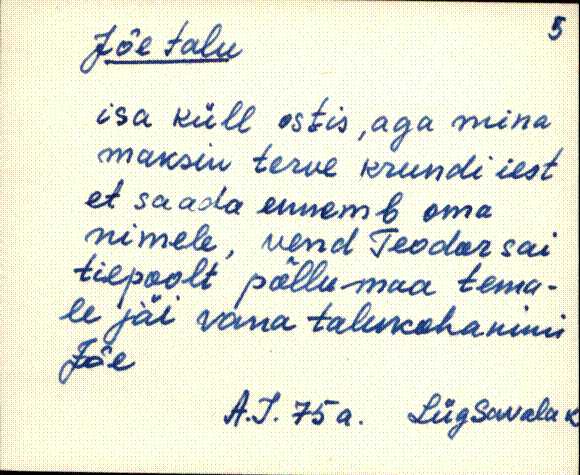 5
Jõe talu
isa küll ostis, aga mina
maksin terve krundi iest
et saada ennemb oma
nimele, vend Teodor sai
tiepoolt põllumaa tema-
le jäi vana talukohanimi
Jõe
A.J. 75 a. LügSavala k